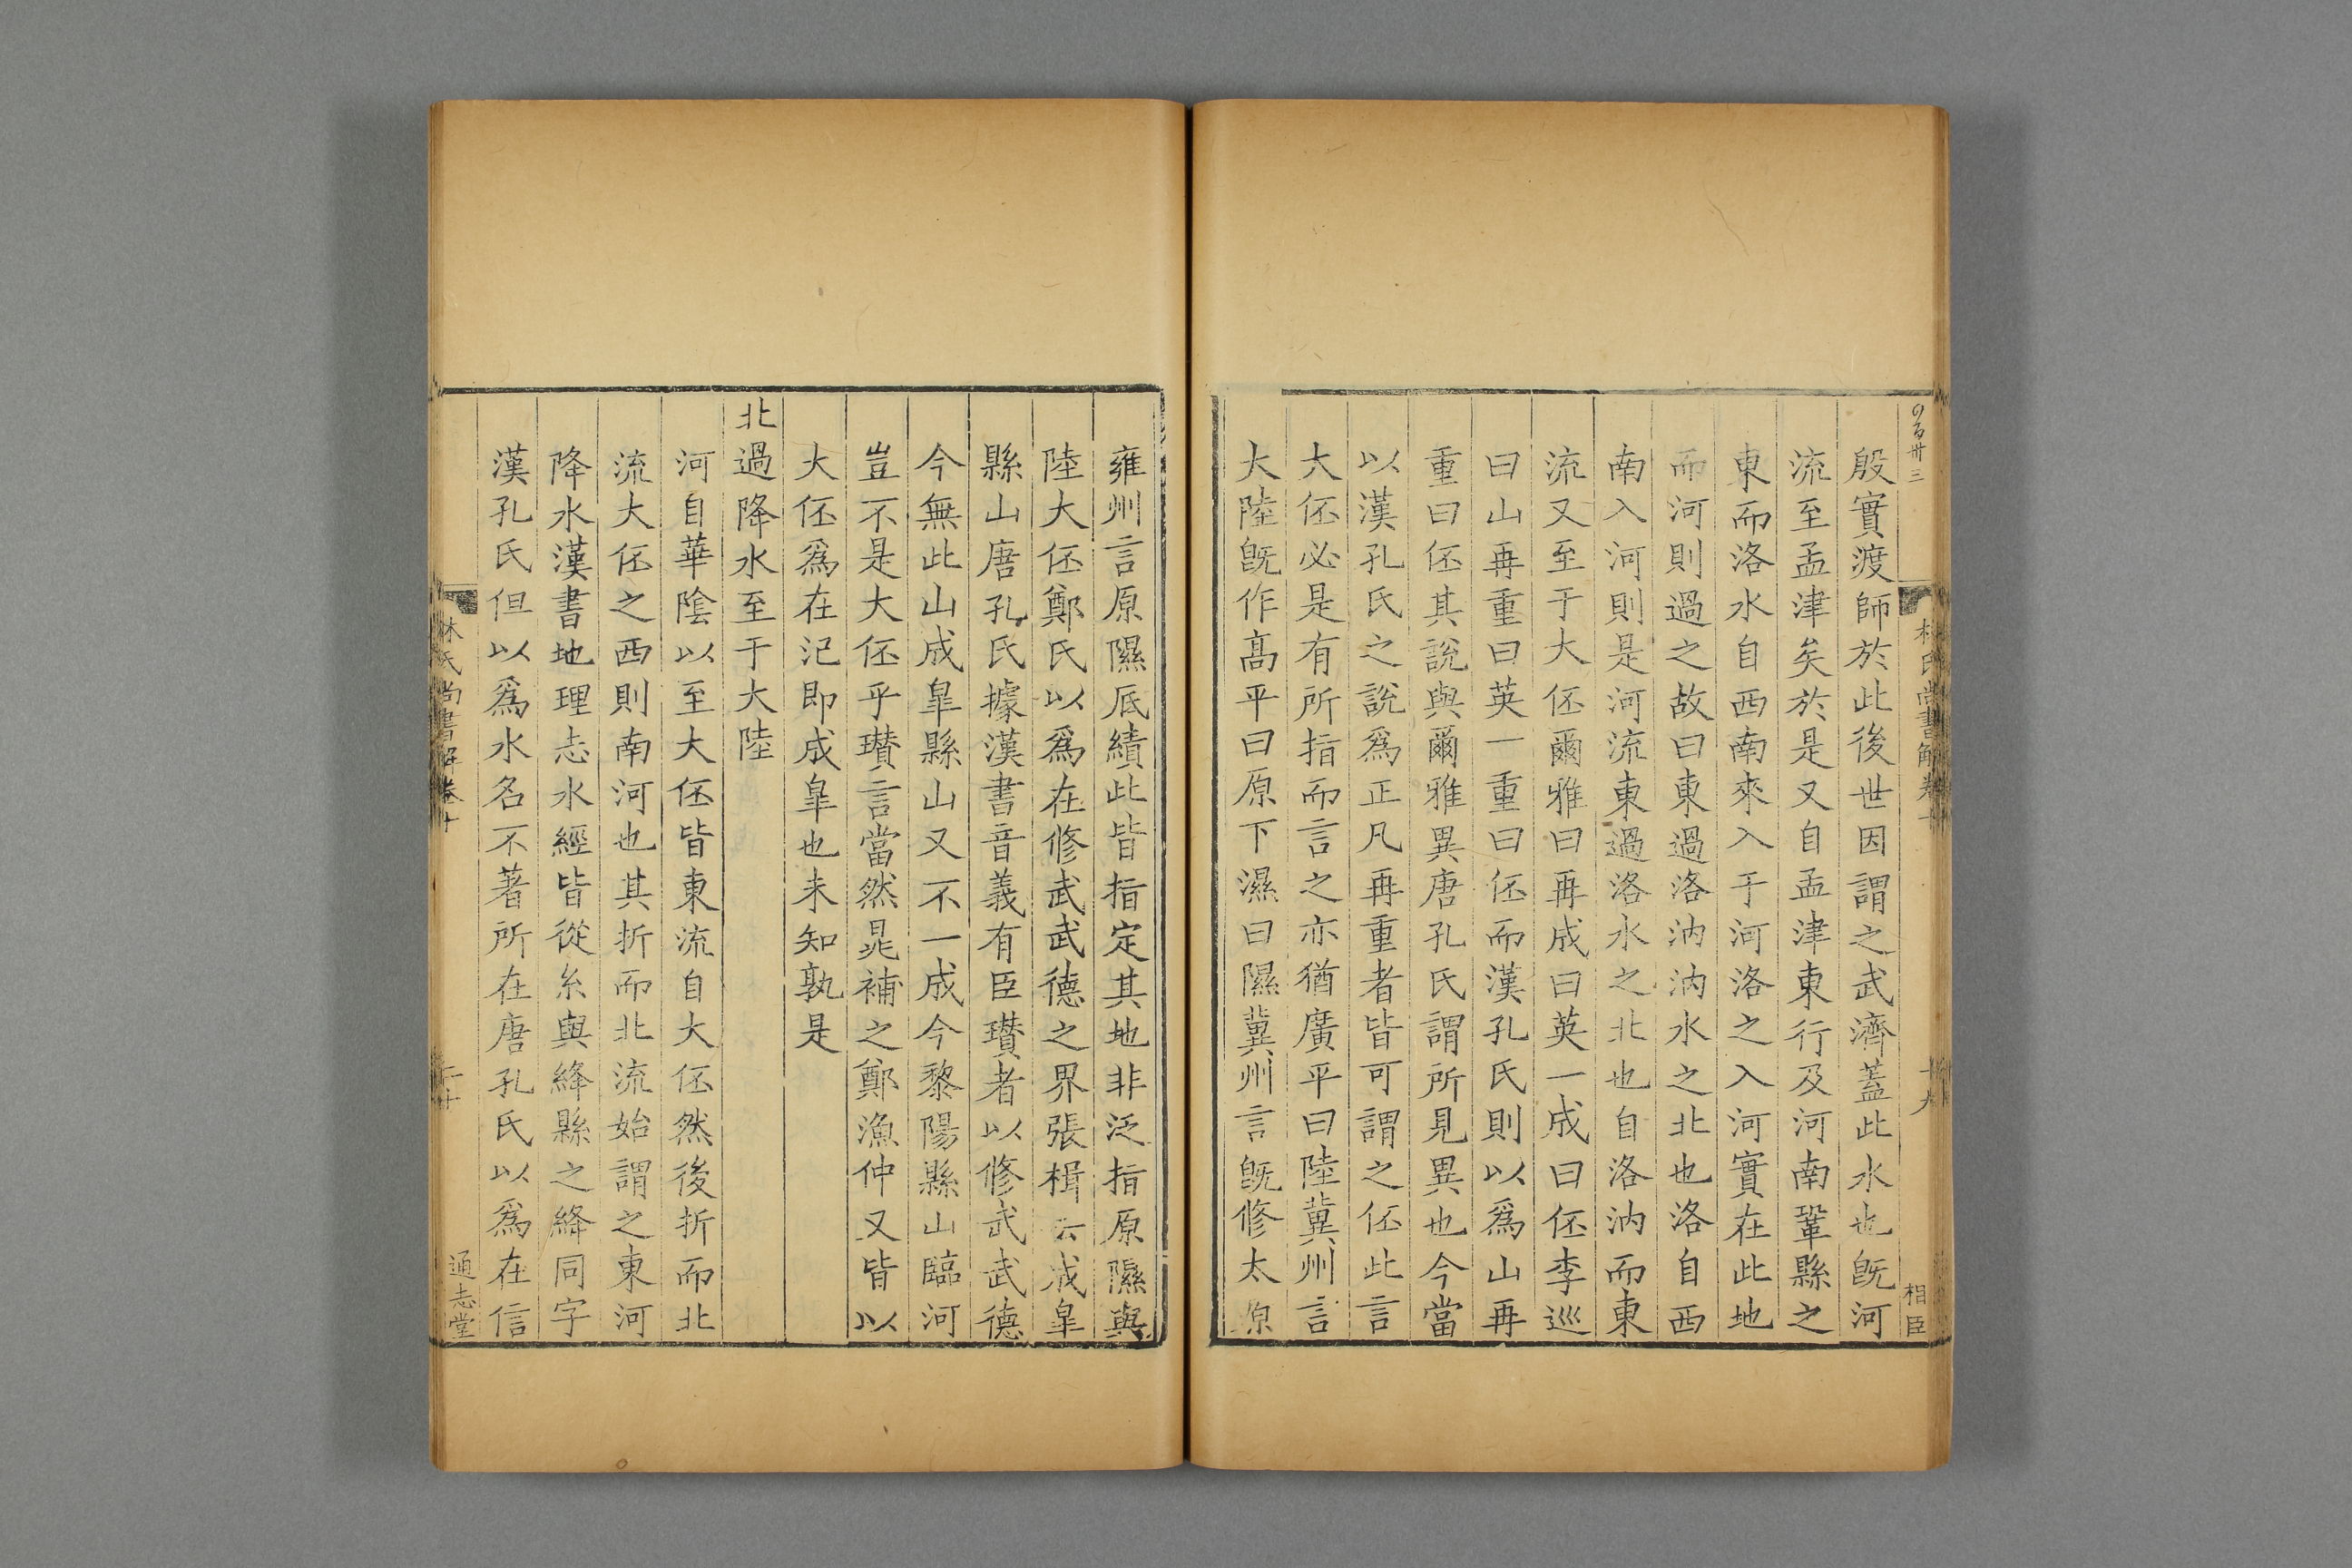 殷實渡師於此後世因謂之武濟蓋此水也旣河
流至孟津矣於是又自孟津東行及河南鞏縣之
東而洛水自西南來入于河洛之入河實在此地
而河則過之故曰東過洛汭汭水之北也洛自西
南入河則是河流東過洛水之北也自洛汭而東
流又至于大伾爾雅曰再成曰英一成曰伾李巡
曰山再重曰英一重曰伾而漢孔氏則以爲山再
重曰伾其說與爾雅異唐孔氏謂所見異也今當
以漢孔氏之說爲正凡再重者皆可謂之伾此言
大伾必是有所指而言之亦猶廣平曰陸冀州言
大陸旣作高平曰原下濕曰隰冀州言旣修太原
林氏尚書解卷十
十九
相臣
雍州言原隰厎績此皆指定其地非泛指原隰與
陸大伾鄭氏以爲在修武武德之界張楫云成皐
縣山唐孔氏據漢書音義有臣瓚者以修武武德
今無此山成皐縣山又不一成今黎陽縣山臨河
豈不是大伾乎瓚言當然晁補之鄭漁仲又皆以
大伾爲在汜即成皐也未知孰是
北過降水至于大陸
河自華陰以至大伾皆東流自大伾然後折而北
流大伾之西則南河也其折而北流始謂之東河
降水漢書地理志水經皆從糸與絳縣之絳同字
漢孔氏但以爲水名不著所在唐孔氏以爲在信
林氏尚書解卷十
二十
通志堂